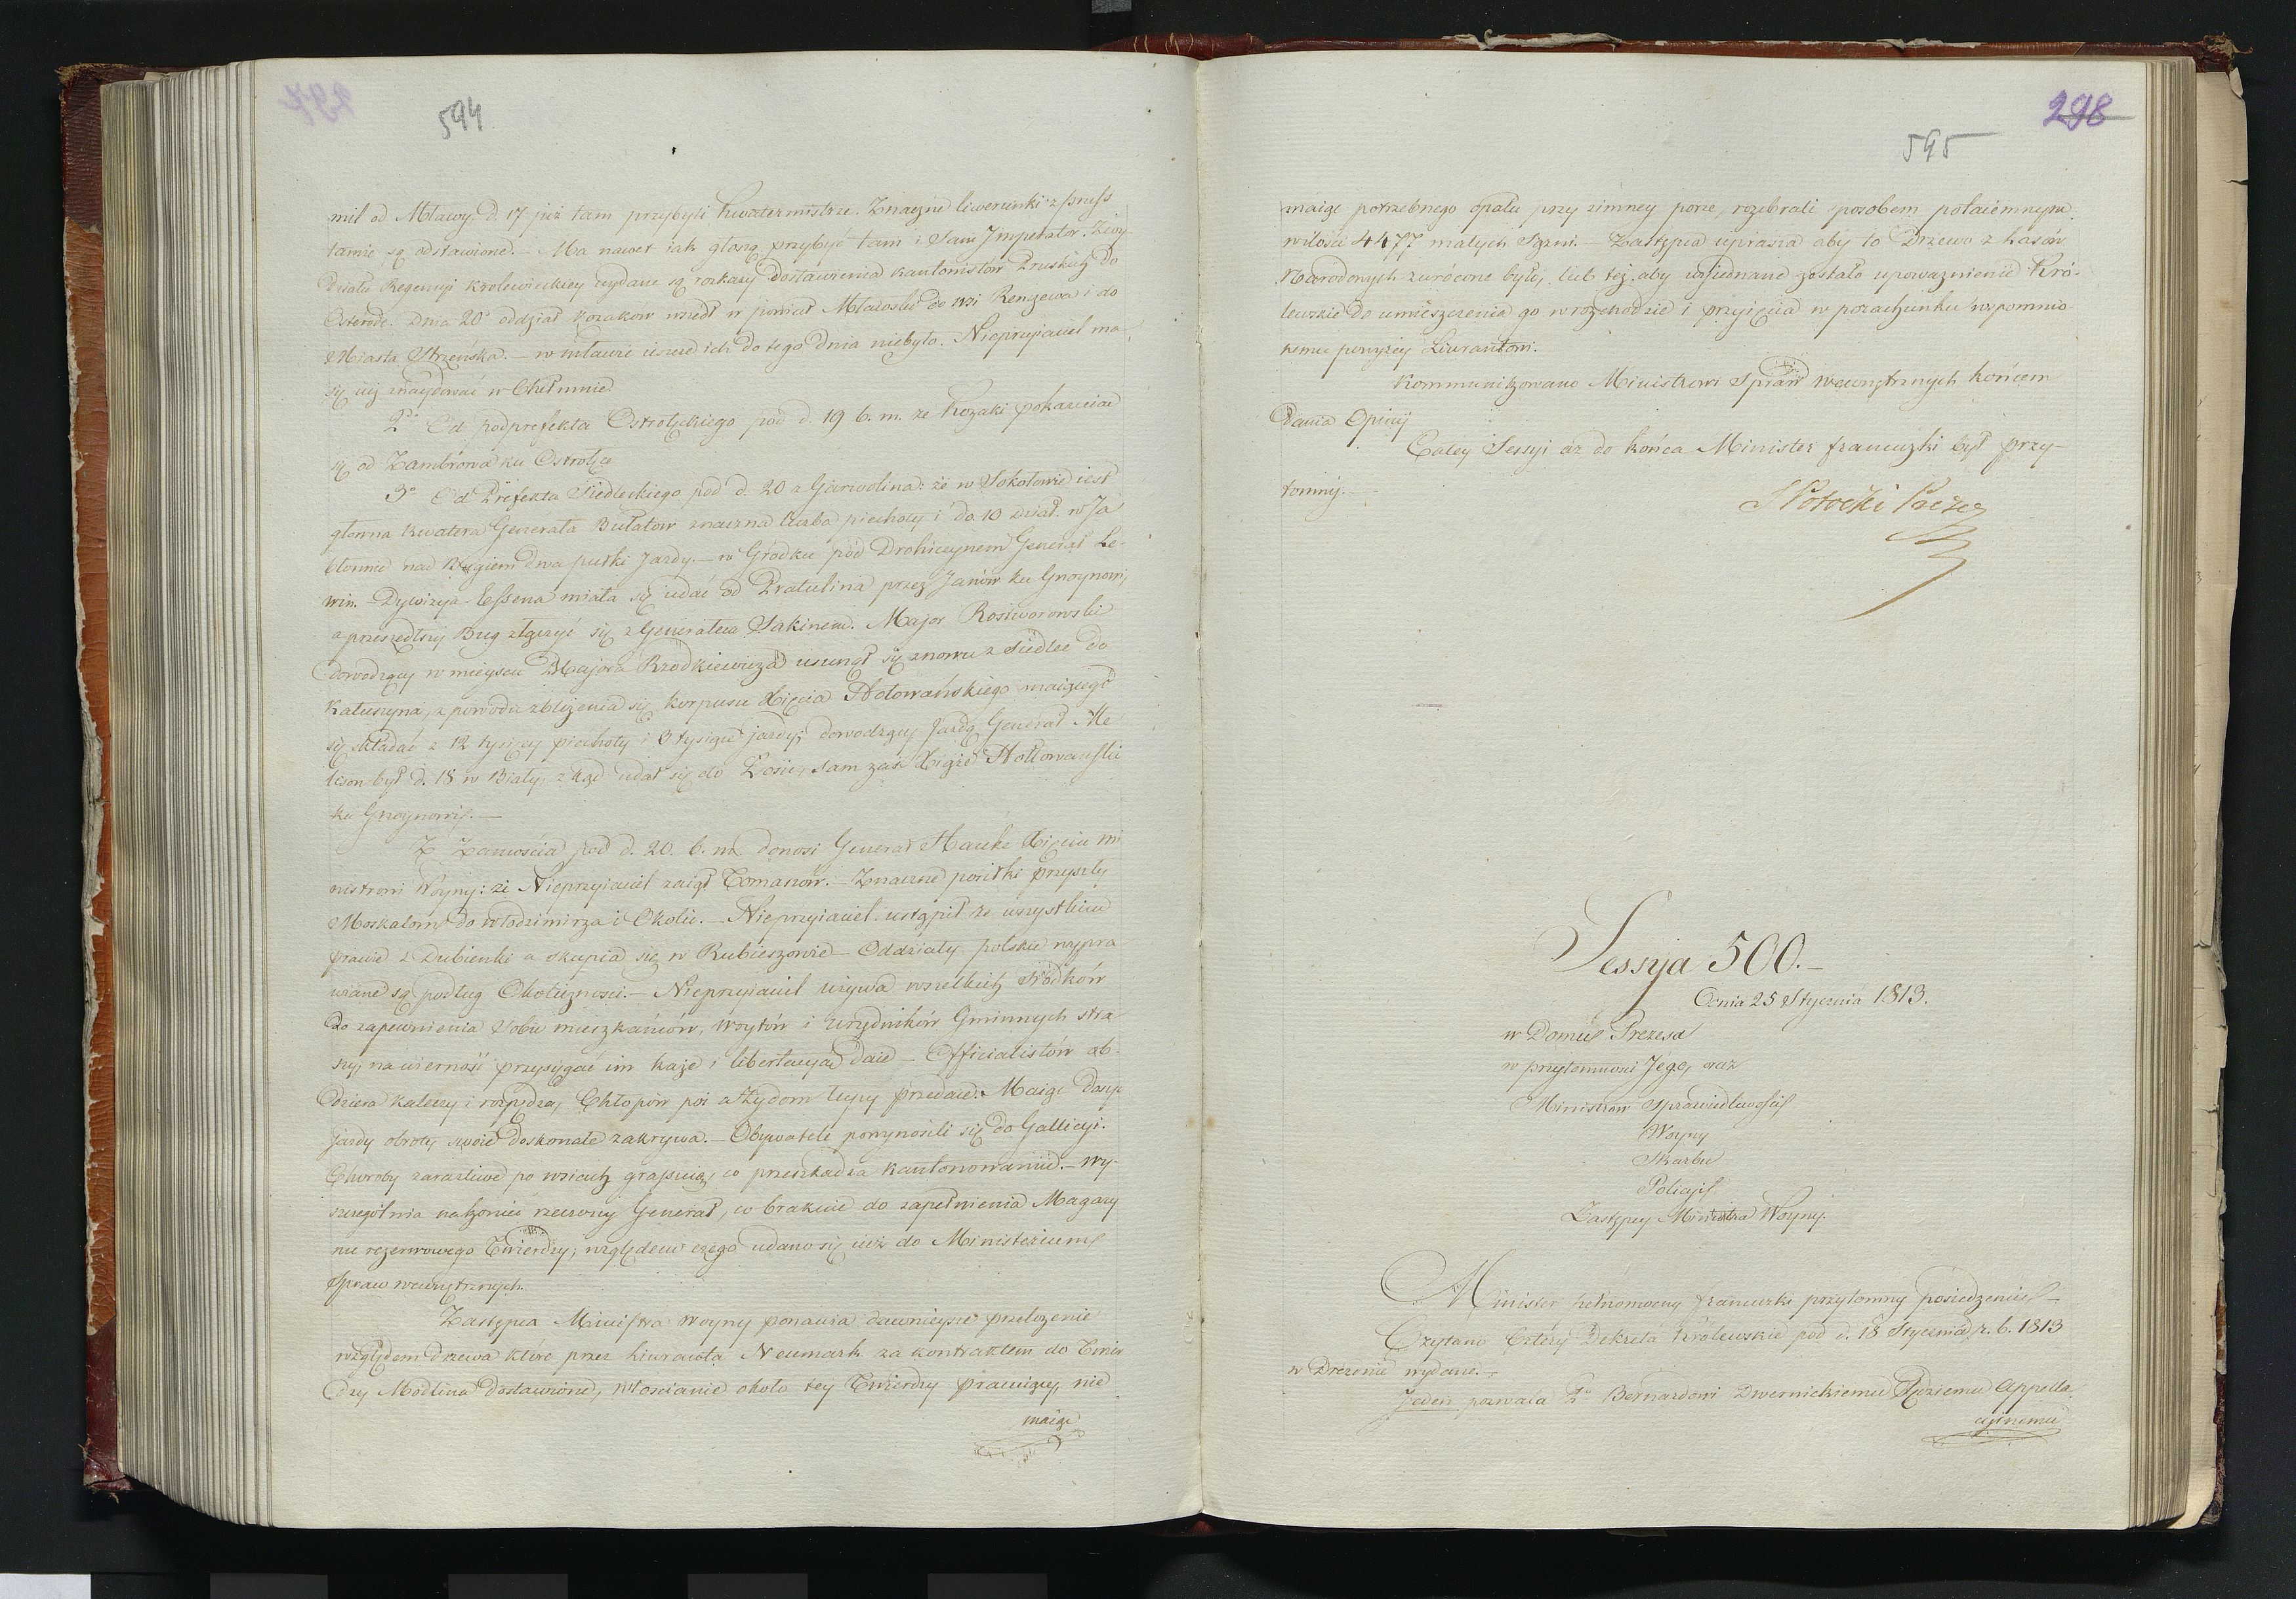 594
mil od Mławy, d. 17 już tam przybyli kwatermistrze. Znaczne liwerunki z pruss
tamże są odstawione. – Ma nawet iak głoszą przybyć tam i Sam Imperator.
Działu Regencyi krolewieckiey wydane są rozkazy dostawienia kantonistów Pruskich do
Osterode. Dnia 20º oddział kozaków wszedł w powiat Mławski do wsi i do
Miasta Strzeńska. – w Mławie ieszcze ich do tego dnia niebyło. Nieprzyiaciel ma
się iuż znaydować w Chełmnie
2º Od podprefekta Ostrołęckiego pod d. 19 b. m. że kozaki pokazuią
się od Zambrowa ku Ostrołęce
3º Od Prefekta Siedleckiego pod d. 20 z Garwolina: że w Sokołowie iest
główna kwatera Generała Bułatow znaczna liczba piechoty i do 10 dział. w Ja
błonnie nad Bugiem dwa pułki Jazdy. – w Gródku pod Drohiczynem Generał Le-
win. – Dywizya Essena miała się udać od Pratulina przez Janów ku Gnoynowi,
a przeszedłszy Bug złączyć się z Generałem Sakinem. Major Rostworowski
dowodzący w mieyscu Majora Rzodkiewicza usunął się znowu z Siedlec do
Kałuszyna, z powodu zbliżenia się korpusu Xięcia Hołowańskiego maiącego
się składać z 12 tysięcy piechoty i 3 tysiące jazdy; dowodzący Jazdą Generał Me
lison był d. 18 w Biały, zkąd udał się do Łosic, sam zaś Xiąże Hołłowański
ku Gnoynowi. –
Z Zamościa pod d. 20. b. m. donosi Generał Hauke Xięciu Mi
nistrowi Woyny: że Nieprzyiaciel zaiął Tomaszow. – Znaczne posiłki przyszły
Moskalom do Włodzimirza i Okolic. – Nieprzyiaciel ustąpił ze wszystkiem
prawie z Dubienki a skupia się w Rubieszowie – Oddziały polskie wypra
wiane są podług Okoliczności. – Nieprzyiaciel używa wszelkich środków
do zapewnienia sobie mieszkańców, woytów i Urzędników Gminnych stra
szy, na wierność przysięgać im każe i libertacya daie – Officialistów ob-
dziera kaleczy i rozpędza, Chłopów poi a Żydom łupy przedaie. Maiąc dosyć
jazdy obroty swoie doskonale zakrywa. – Obywatele powynosili się do Gallicyi.
Choroby zaraźliwe po wsiach grassuią, co przeszkadza kantonowaniu. – Wy-
szczególnia nakoniec rzeczony Generał, co brakuie do zapełnienia Magazy
nu rezerwowego Twierdzy; względem czego udano się iuż do Ministerium
Spraw wewnętrznych.
Zastępca Ministra Woyny ponawia dawnieysze przełożenie
względem drzewa które przez liweranta Neumark za kontraktem do Twier
dzy Modlina dostawione, włościanie około tey Twierdzy pracuiący, nie
maiąc
298
595
maiąc potrzebnego opału przy zimney porze, rozebrali sposobem potaiemnym
w ilości 4477 małych Sążni. – Zastępca uprasza aby to Drzewo z Lasów
Narodowych zwrócone było, lub też aby wyiednane zostało upoważnienie Kró-
lewskie do umieszczenia go w rozchodzie i przyięcia w porachunku wspomnio-
nemu powyżey Liwerantowi.
Kommunikowano Ministrowi Spraw Wewnętrznych końcem
Dania Opinij
Całey Sessyi aż do końca Minister francuzki był przy-
tomny. –
S Potocki Prezes
Sessya 500. –
Dnia 25 Stycznia 1813.
w Domu Prezesa
w przytomności Jego, oraz
Ministrów Sprawiedliwości
Woyny
Skarbu
Policyi
Zastępcy Ministra Woyny.
Minister pełnomocny francuzki przytomny posiedzeniu –
Czytano Cztery Dekreta Królewskie pod d. 18 Stycznia r. b. 1813
w Dreznie wydane. –
Jeden pozwala Bernardowi Dwernickiemu Sędziemu Appella
cyjnemu